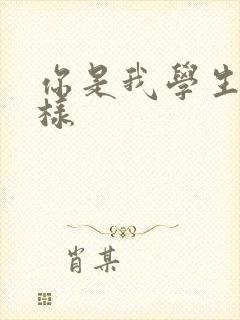 你是我學生
樣
肖某